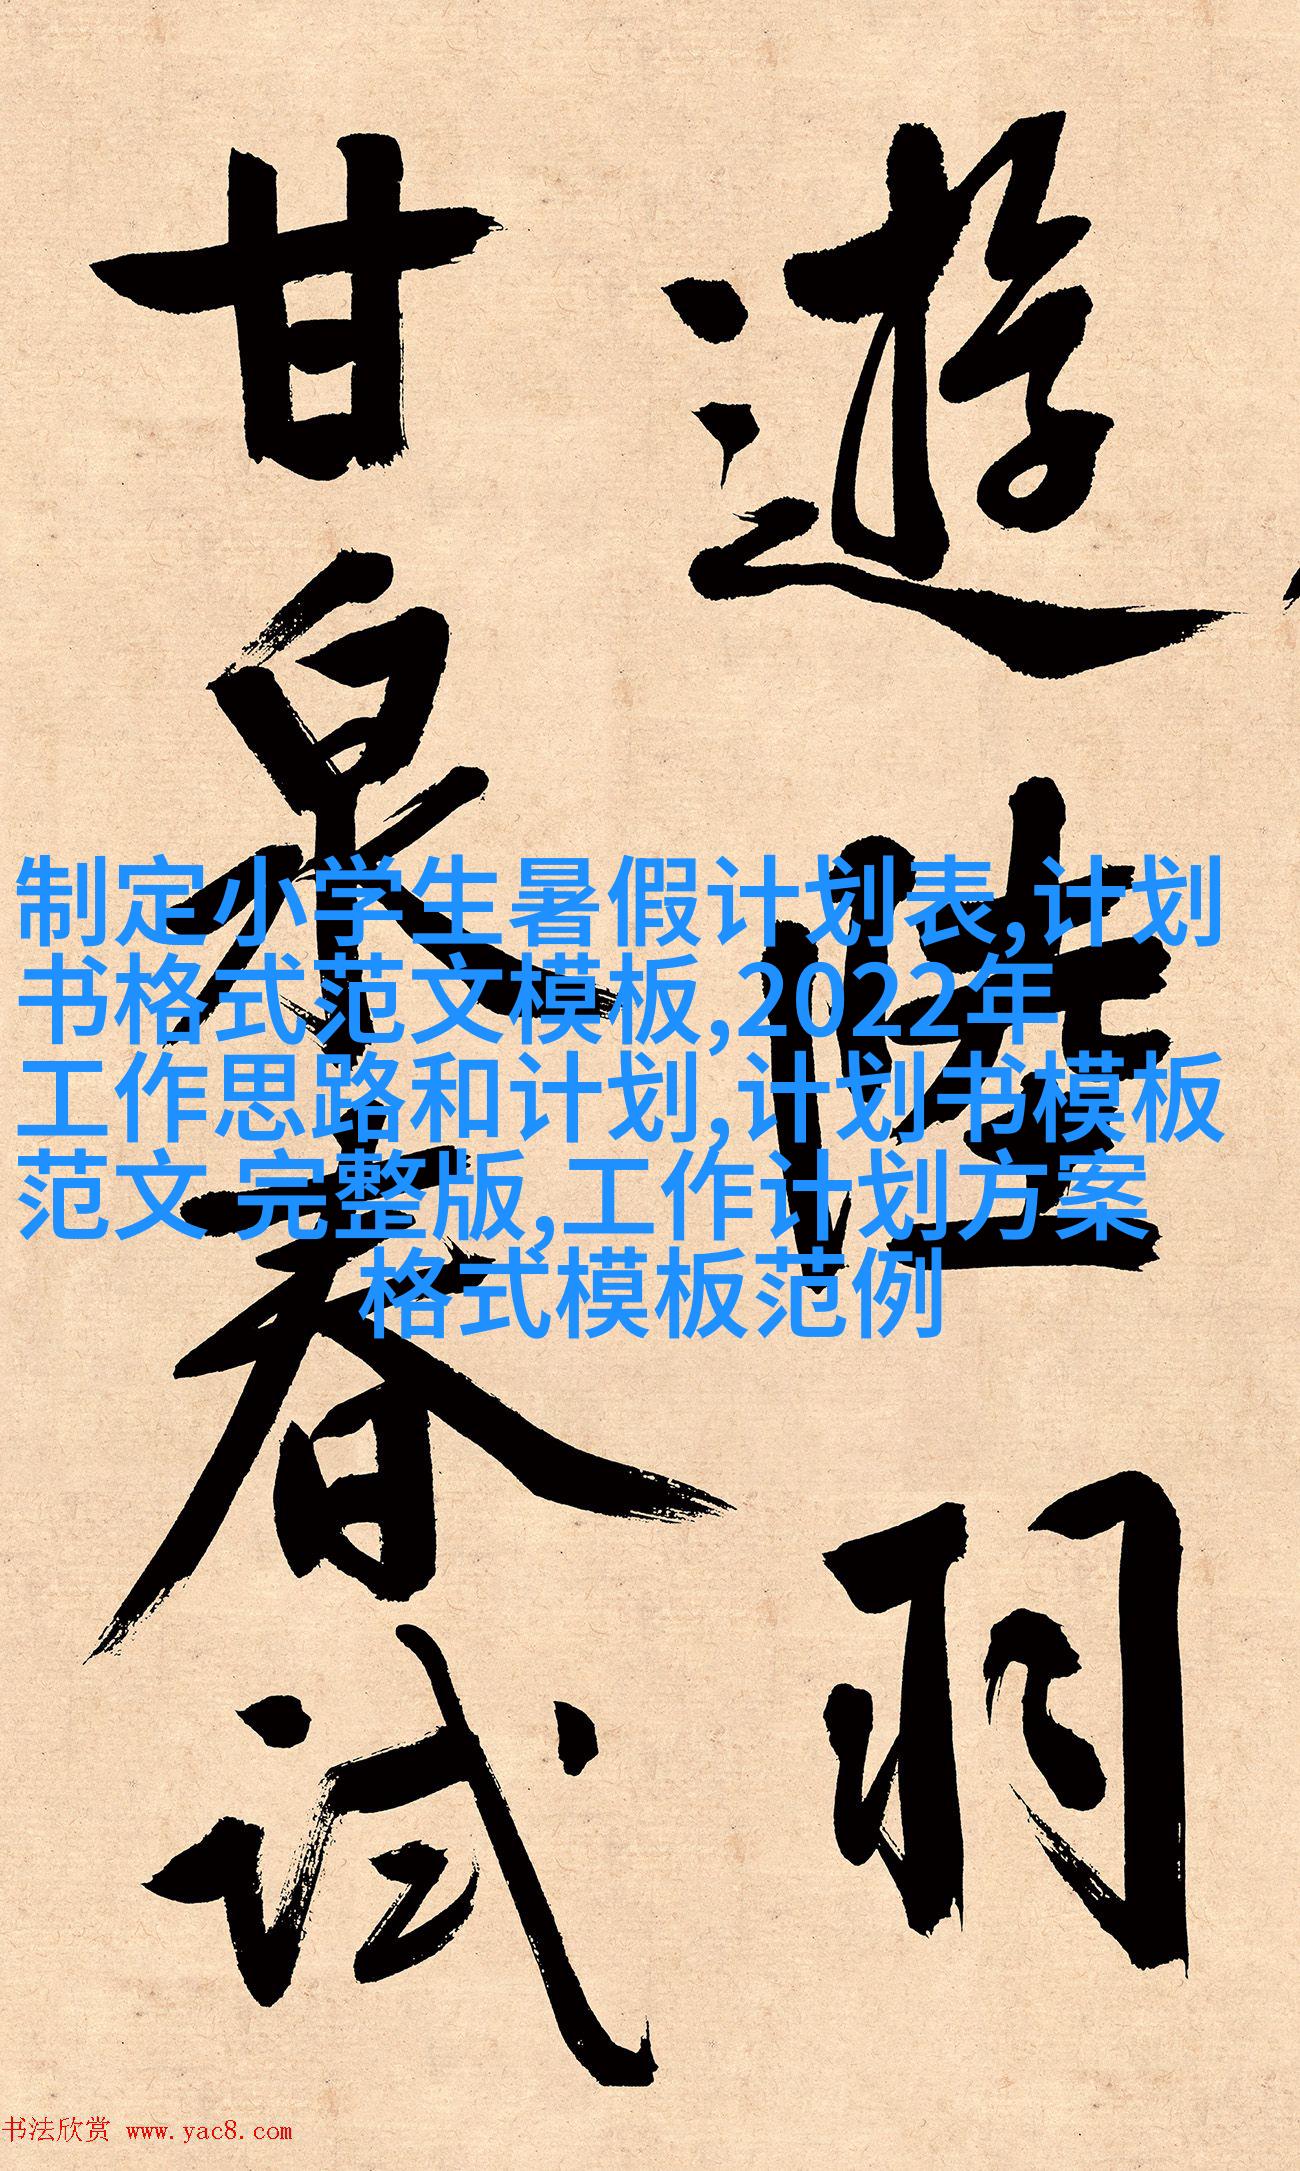 遊陸羽
甘泉春试
制定小学生暑假计划表,计划
书格式范文模板,2022年
工作思路和计划,计划书模板
范文 完整版,工作计划方案
格式模板范例
书法欣赏 www.yac8.com